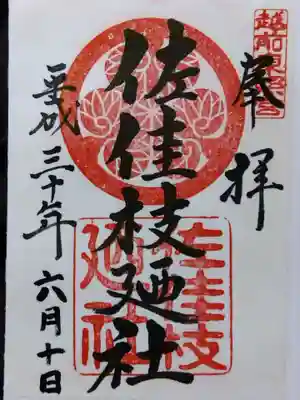 越前東照宮
奉拝
佐佳枝廼社
佐佳枝廼社
平成三十年六月十日